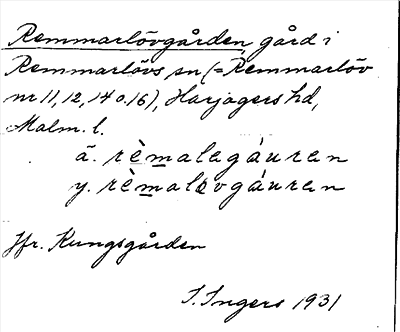 Remmarlövgården, gård i
Remmarlövs sn (= Remmarlöv
nr 11, 12, 14 o. 16), Harjagers hd,
Malm. l.
ä. rèmalagáuran
y. rèmalövgáuran
Jfr. Kungsgården
I. Ingers 1931